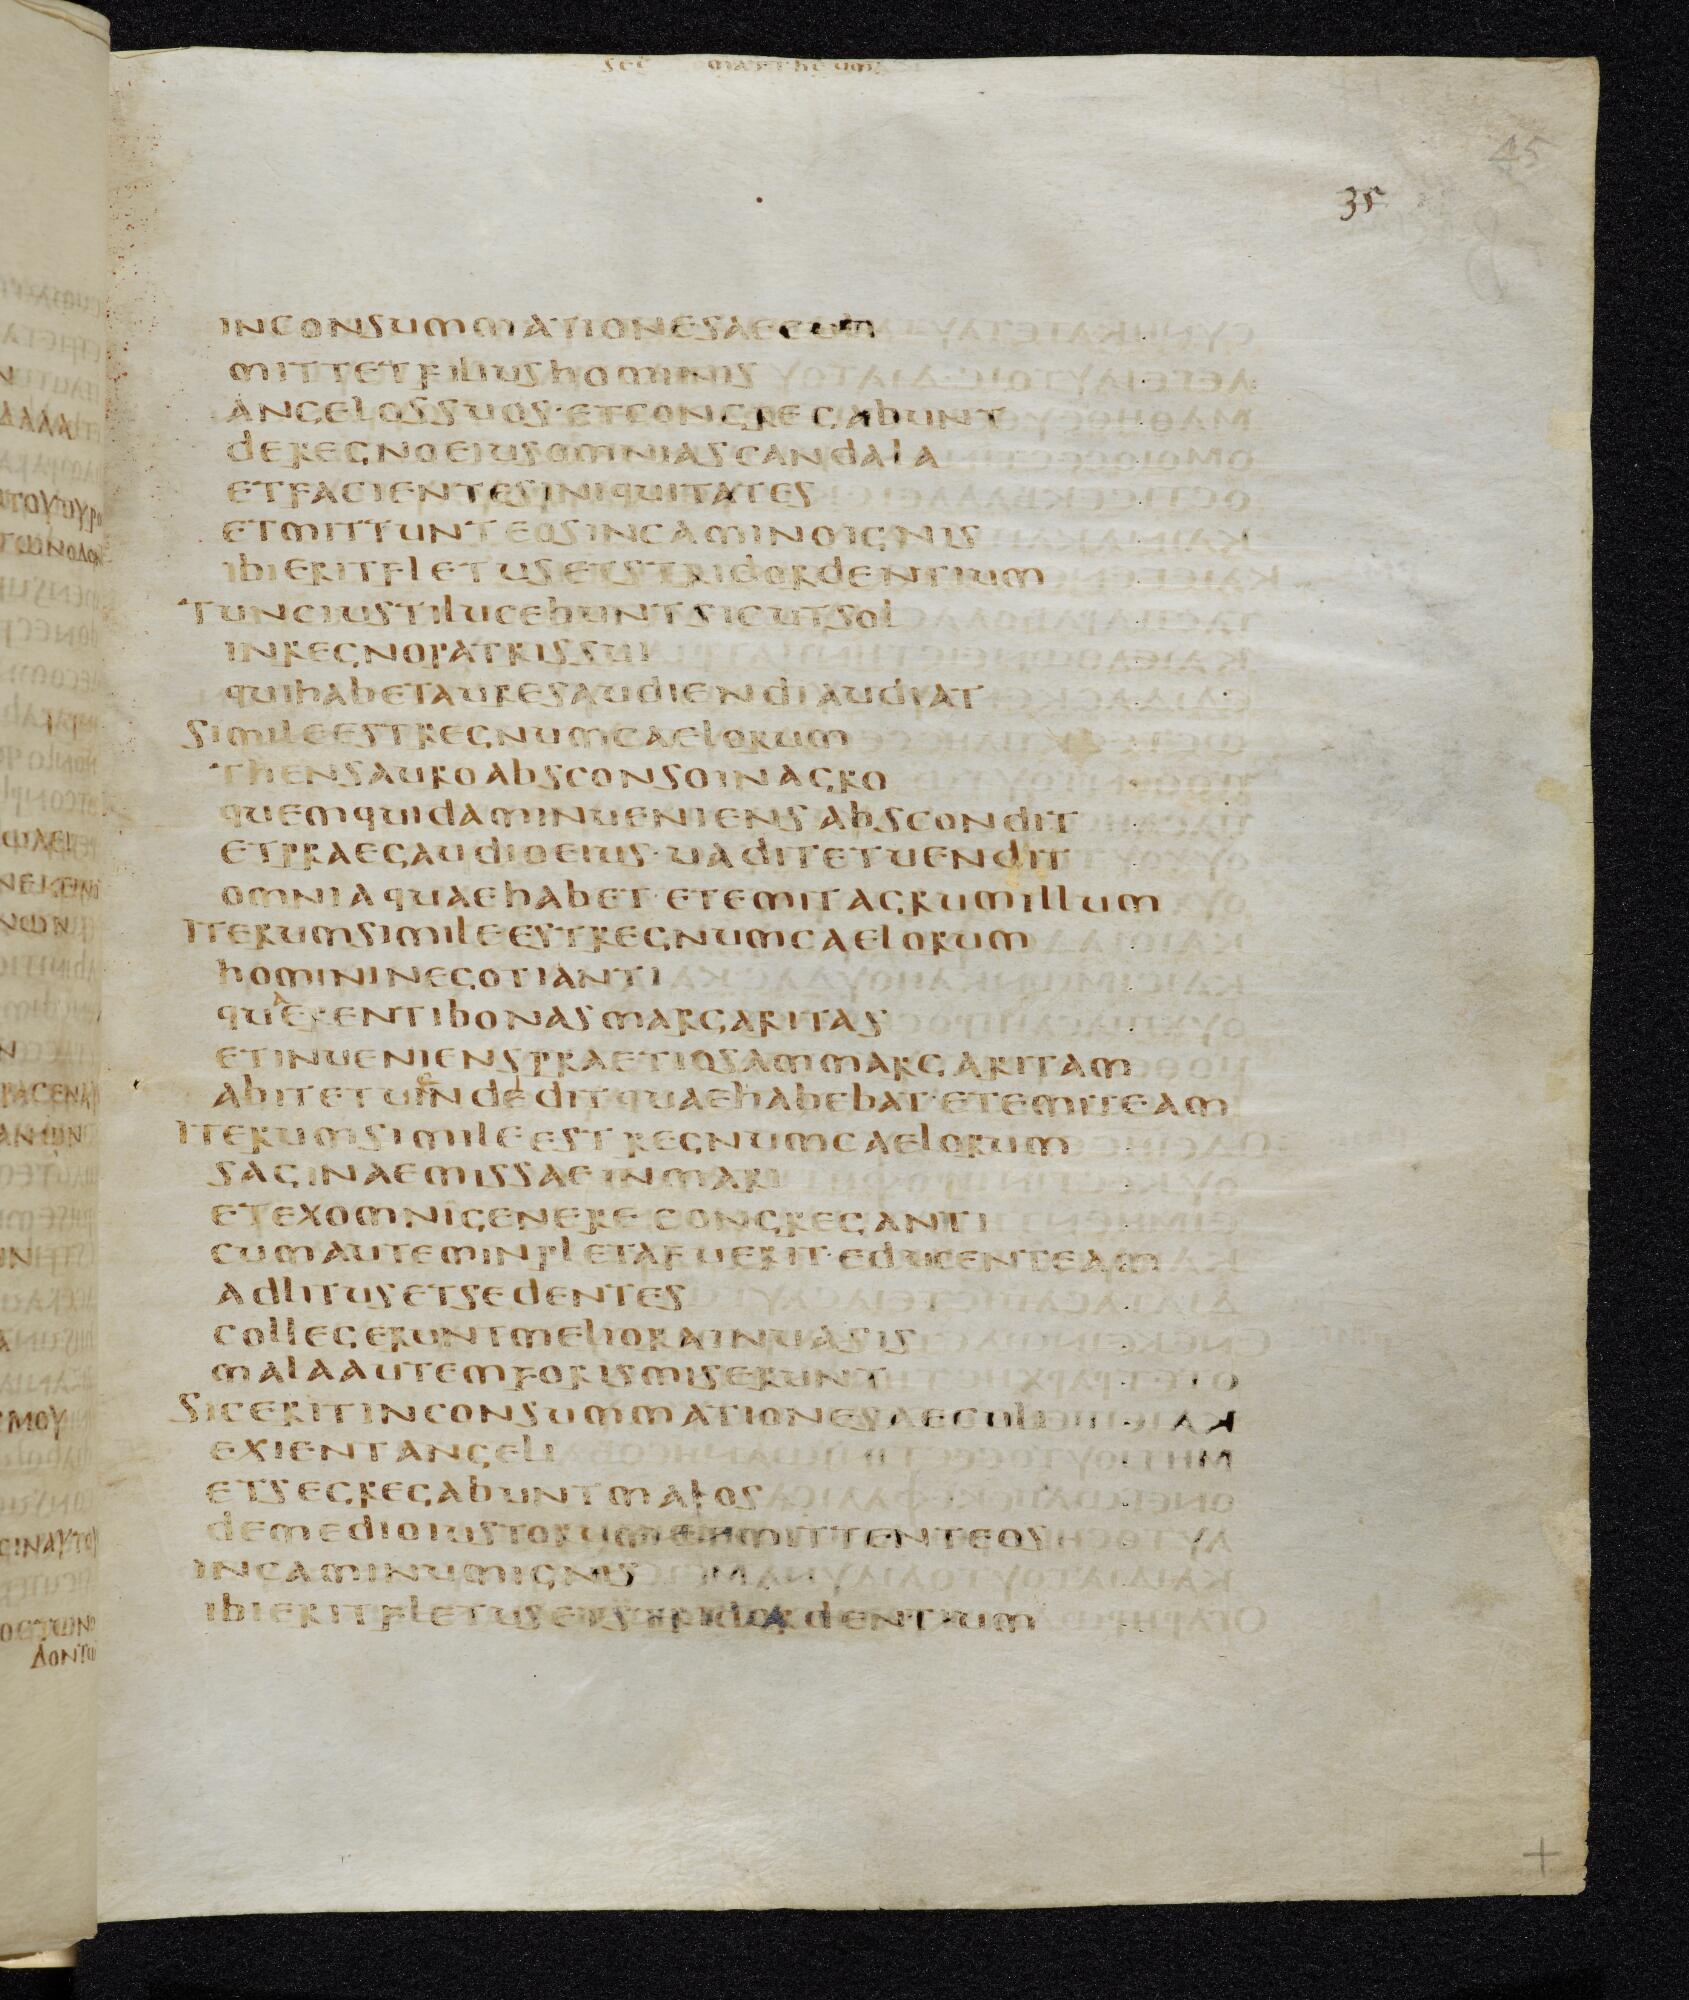 sec mattheum
45
35
INCONSUMMATIONESAECULI
MITTETFILIUSHOMINIS
ANGELOSSUOS·ETCONGREGABUNT
DEREGNOEIUSOMNIASCANDALA
ETFACIENTESINIQUITATES
ETMITTUNTEOSINCAMINOIGNIS
IBIERITFLETUSETSTRIDORDENTIUM
TUNCIUSTILUCEBUNTSICUTSOL
INREGNOPATRISSUI
QUIHABETAURESAUDIENDIAUDIAT
SIMILEESTREGNUMCAELORUM
THENSAUROABSCONSOINAGRO
QUEMQUIDAMINUENIENSABSCONDIT
ETPRAEGAUDIOEIUS·UADITETUENDIT
OMNIAQUAEHABET·ETEMITAGRUMILLUM
ITERUMSIMILEESTREGNUMCAELORUM
HOMININEGOTIANTI
QUAERENTIBONASMARGARITAS
ETINUENIENSPRAETIOSAMMARGARITAM
ABITETUINDEDITQUAEHABEBAT·ETEMITEAM
ITERUMSIMILEESTREGNUMCAELORUM
SAGINAEMISSAEINMARI
ETEXOMNIGENERECONGREGANTI
CUMAUTEMINPLETAFUERIT·EDUCENTEAM
ADLITUSETSEDENTES
COLLEGERUNTMELIORAINUASIS
MALAAUTEMFORISMISERUNT
SICERITINCONSUMMATIONESAECULI
EXIENTANGELI
ETSEGREGABUNTMALOS
DEMEDIOIUSTORUM MITTENTEOS
INCAMINUMIGNIS
IBIERITFLETUSETSTRIDORDENTIUM